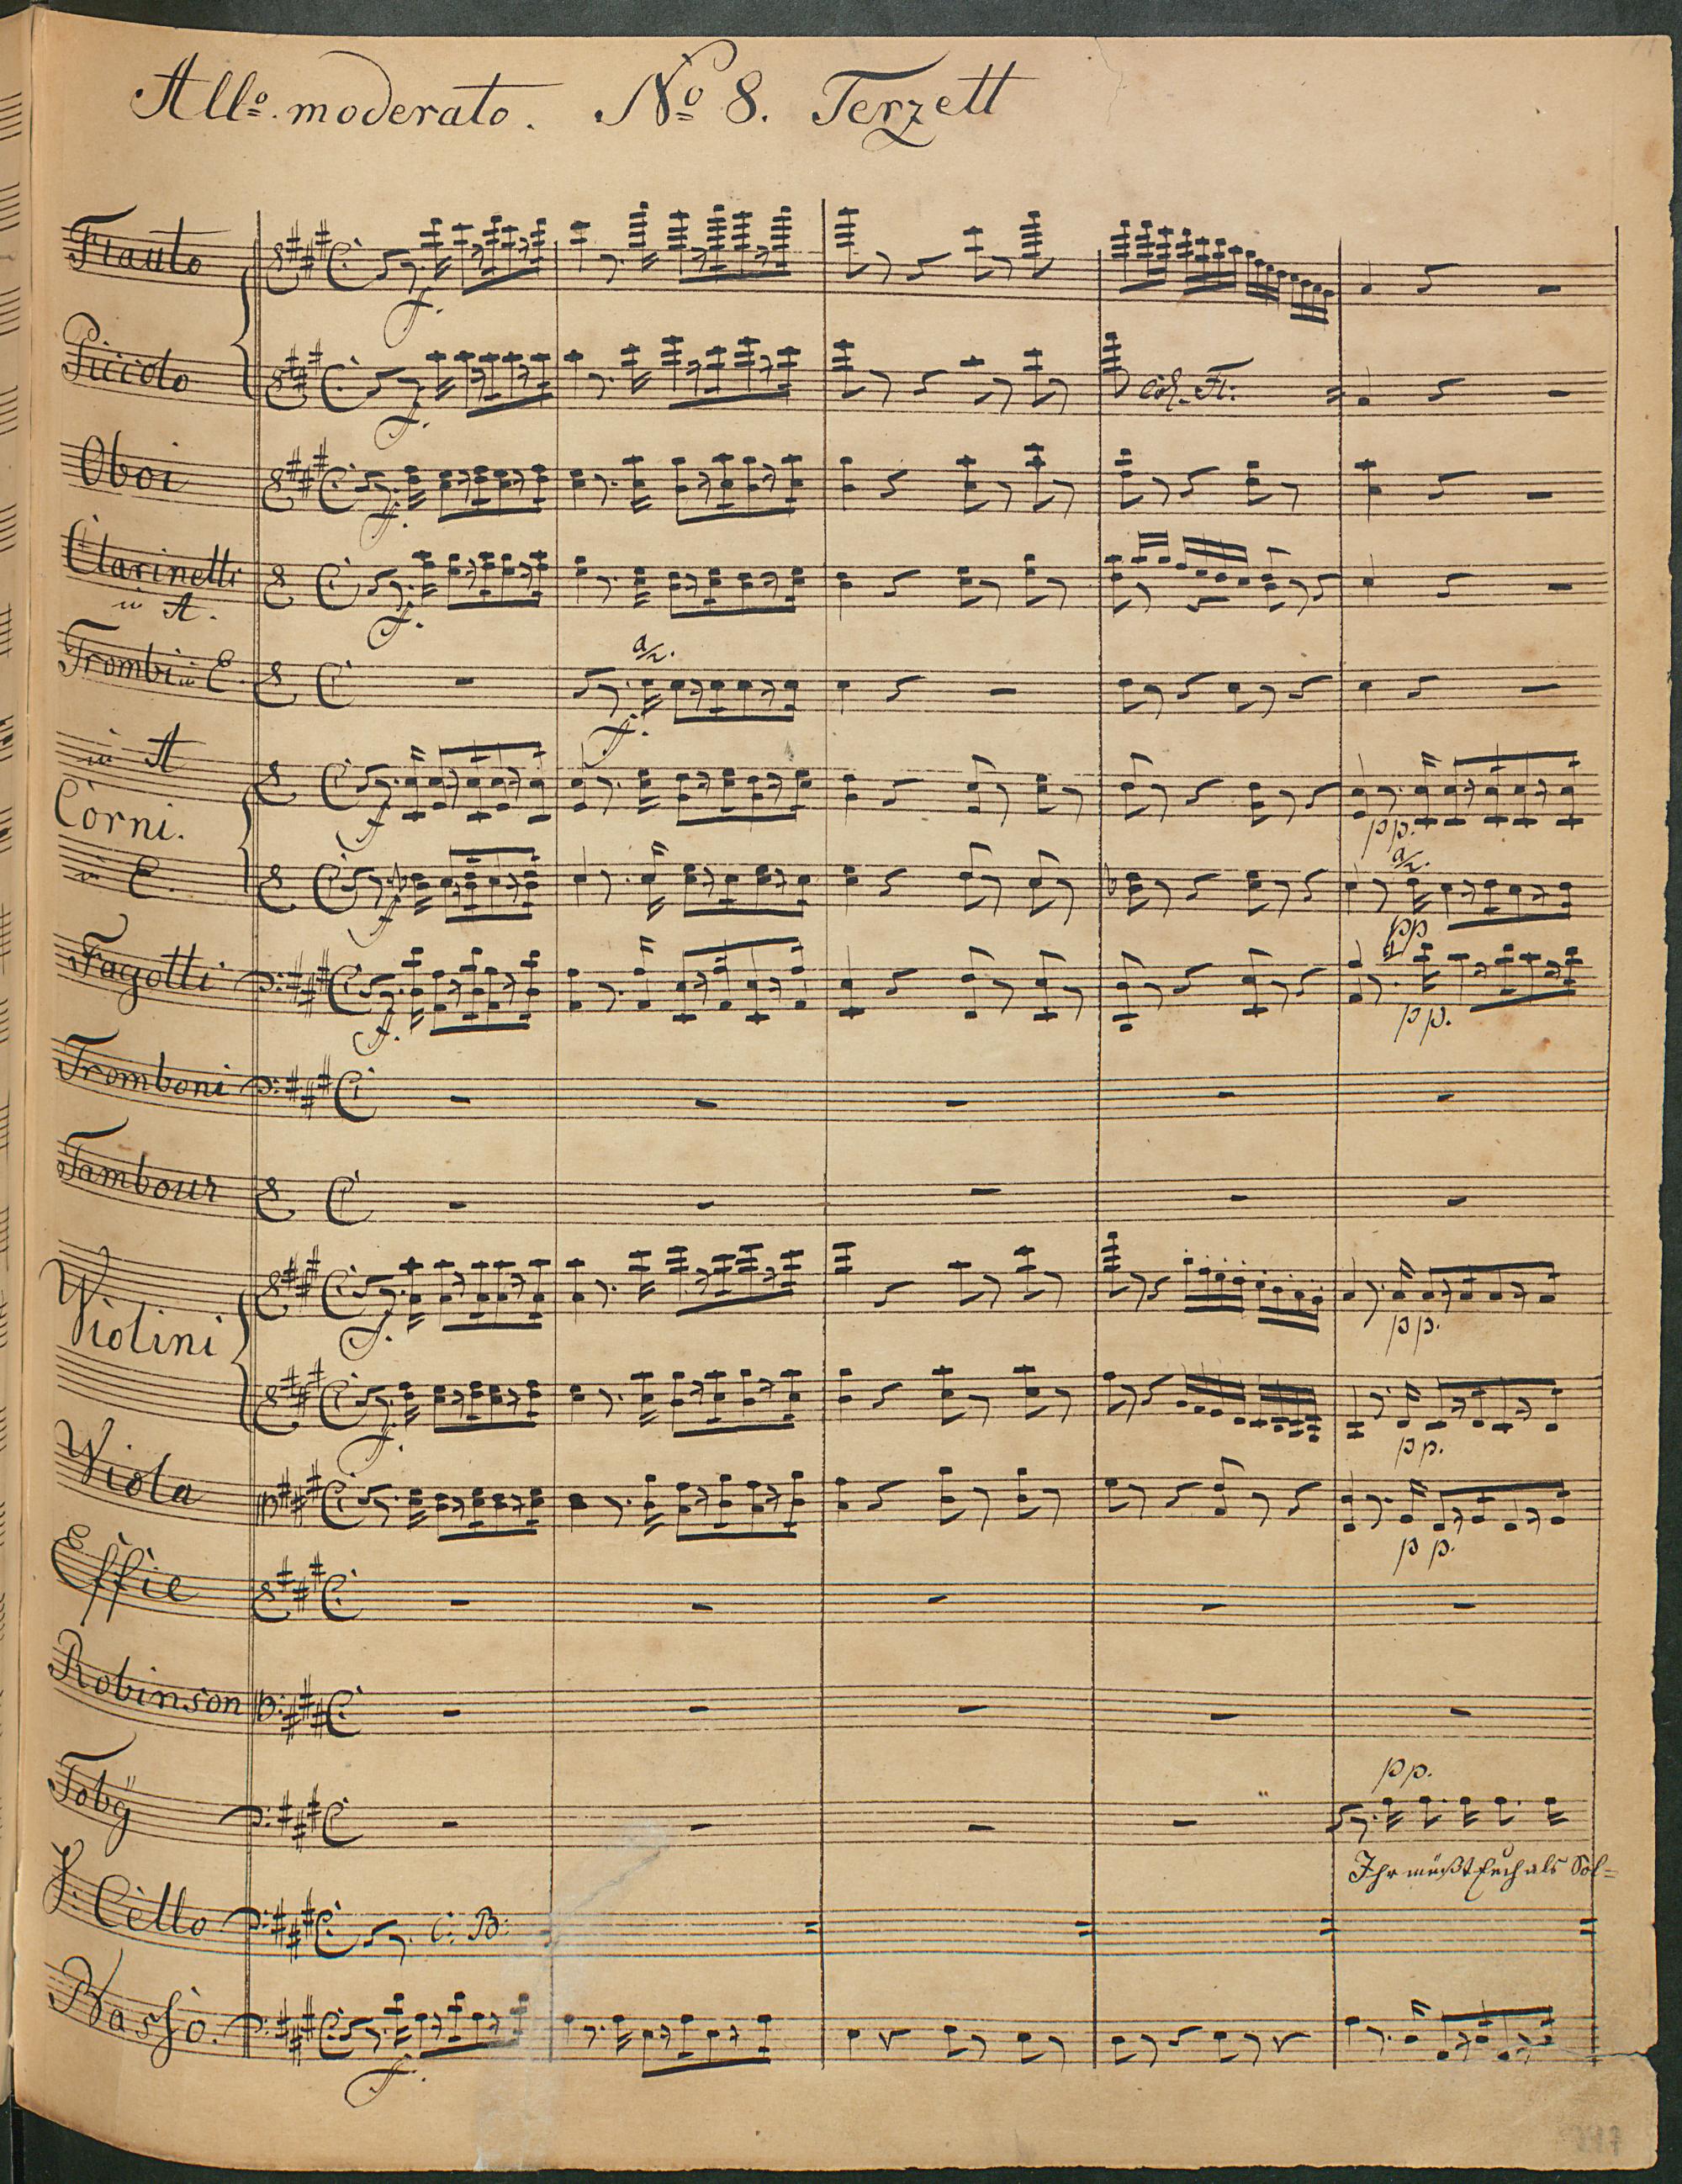 Allo. moderato. No 8. Terzett
Flauto
f.
Piccolo
f.
Col. Fl:
Oboi
f.
Clarinetti
in A.
f.
Trombi in E.
a2.
f.
in A
Corni.
f
pp.
in E.
f
a2.
pp
Fagotti
f.
pp.
Tromboni
Tambour
Violini
f.
pp.
f.
pp.
Viola
pp.
Effie
Robinson
Toby
pp.
Ihr müßt Euch als Sol=
V. Cello
C. B.
Basso.
f.